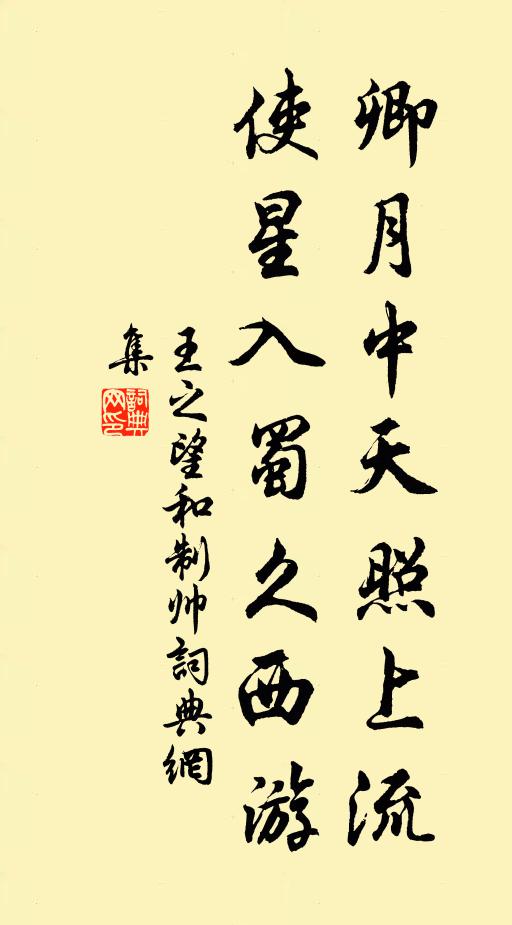 卿月中天照上流
使星入蜀久西游
王之望和制帅詞典網
集
詞典
网印